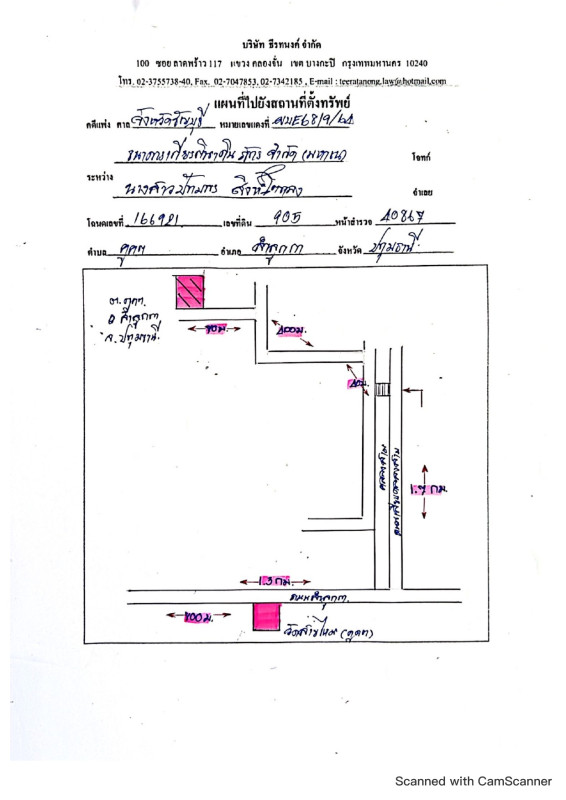 บริษัท ธีรทนงค์ จำกัด
100 ซอย ลาดพร้าว 117 แขวง คลองจั่น เขต บางกะปิ กรุงเทพมหานคร 10240
โทร. 02-3755738-40, Fax. 02-7047853, 02-7342185 , E-mail : teeratanong.law@hotmail.com
แผนที่ไปยังสถานที่ตั้งทรัพย์
คดีแพ่ง ศาล จังหวัดธัญบุรี หมายเลขแดงที่ ผบE6819/64
ธนาคารเกียรตินาคิน ภัทร จำกัด (มหาชน) โจทก์
ระหว่าง
นางสาวปัทมกร จำเลย
โฉนดเลขที่ 166921 เลขที่ดิน 905 หน้าสำรวจ 40867
ตำบล คูคต อำเภอ ลำลูกกา จังหวัด ปทุมธานี
ต.คูคต
อ.ลำลูกกา
จ.ปทุมธานี
400ม.
1.7 กม.
1.3 กม.
ถนนลำลูกกา
400ม.
วัดสายไหม (คูคต)
Scanned with CamScanner